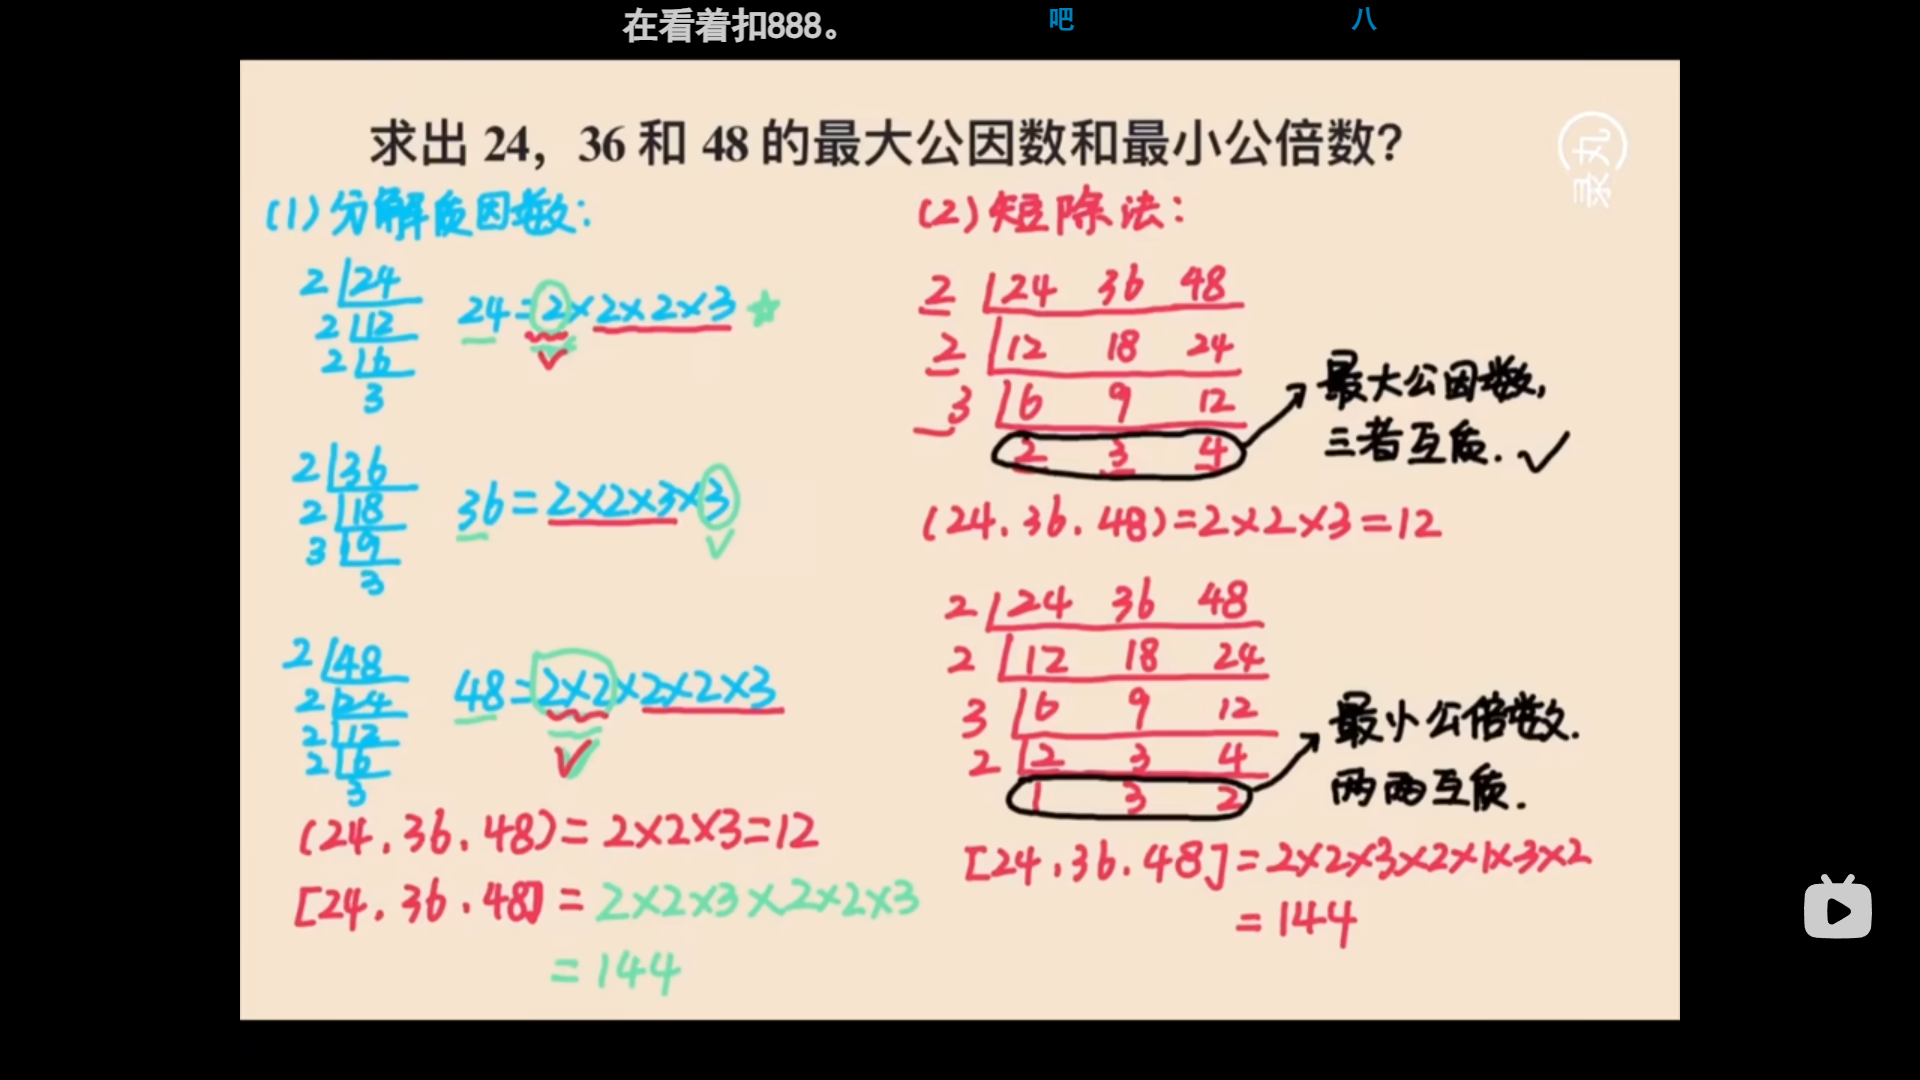 在看着扣888。
吧
八
求出 24，36 和 48 的最大公因数和最小公倍数?
录丸
(1)分解质因数:
2 24
2 12
2 6
3
24=2×2×2×3
2 36
2 18
3 9
3
36=2×2×3×3
2 48
2 24
2 12
2 6
3
48=2×2×2×2×3
(24.36.48)=2×2×3=12
[24.36.48]=2×2×3×2×2×3
=144
(2)短除法:
2 24 36 48
2 12 18 24
3 6 9 12
2 3 4
最大公因数,
三者互质.
(24.36.48)=2×2×3=12
2 24 36 48
2 12 18 24
3 6 9 12
2 2 3 4
1 3 2
最小公倍数.
两两互质.
[24.36.48]=2×2×3×2×1×3×2
=144